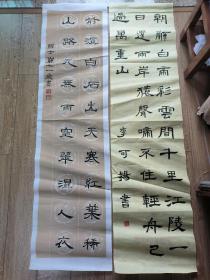 朝辭白帝彩雲間千里江陵一
日還兩岸猿聲啼不住輕舟已
過萬重山
書
荊溪白石出天寒紅葉稀
山路元無雨空翠濕人衣